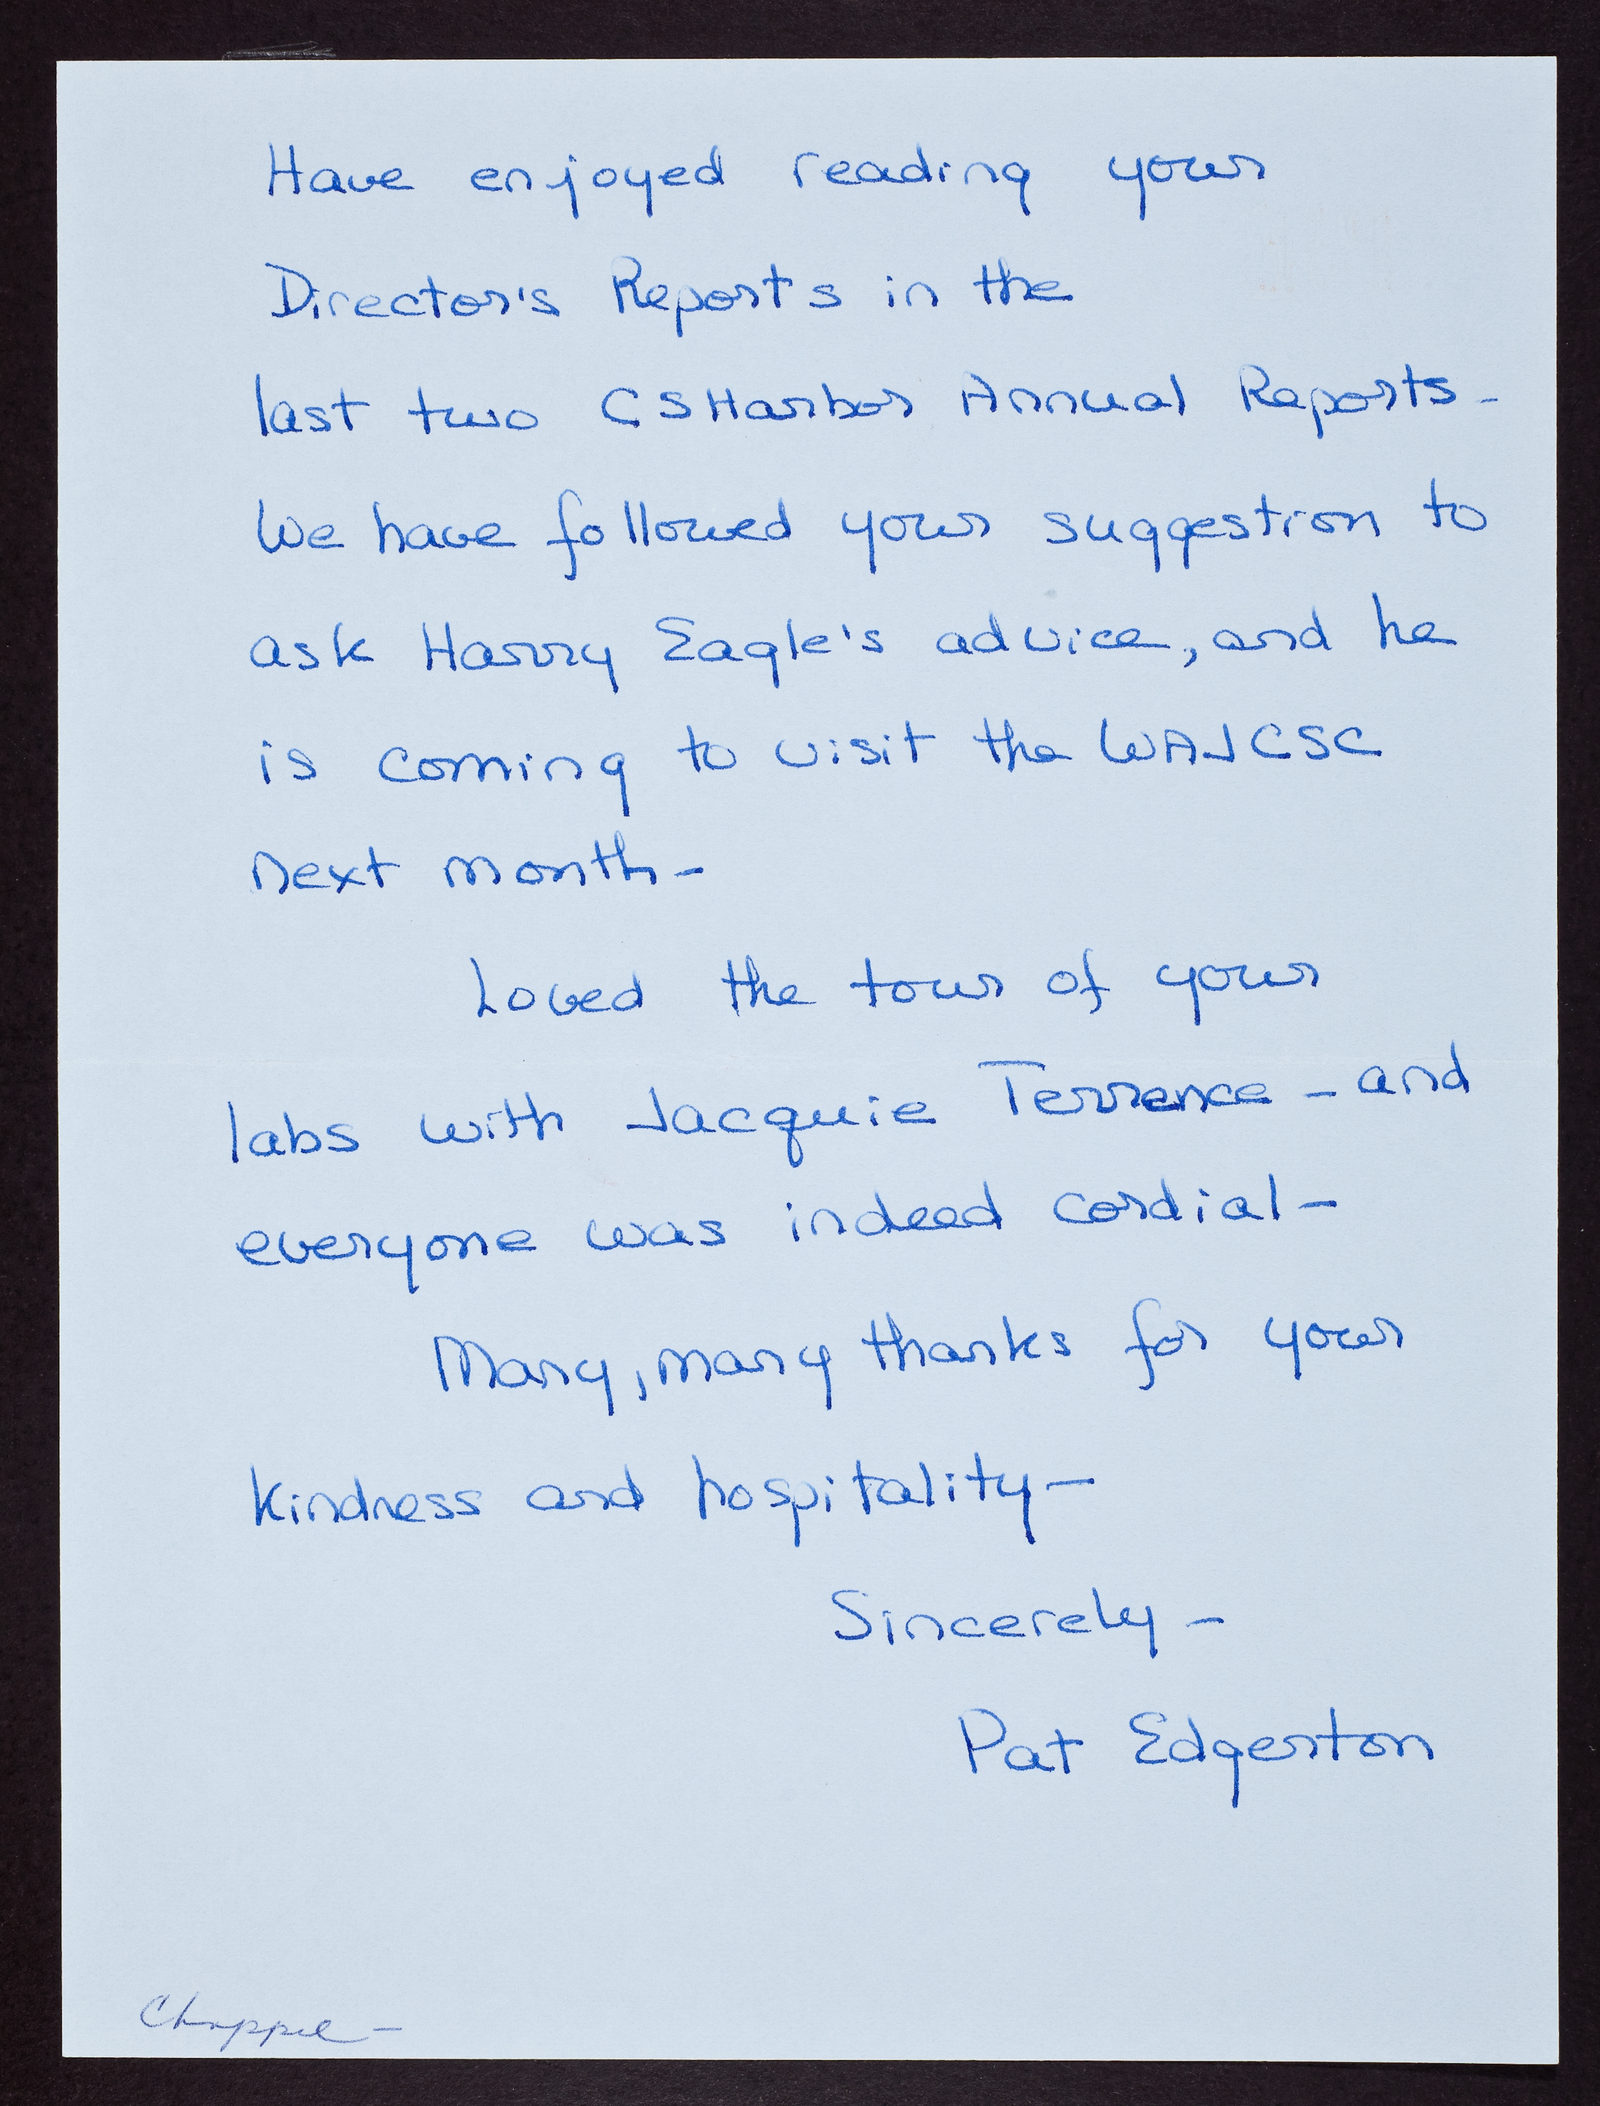 Have enjoyed reading your
Director's Reports in the
last two CSHarbor Annual Reports -
We have followed your suggestion to
ask Harry Eagle's advice, and he
is coming to visit the WAJCSC
next month -
Loved the tour of your
labs with Jacquie Terrence - and
everyone was indeed cordial -
Many, many thanks for your
kindness and hospitality -
Sincerely -
Pat Edgerton